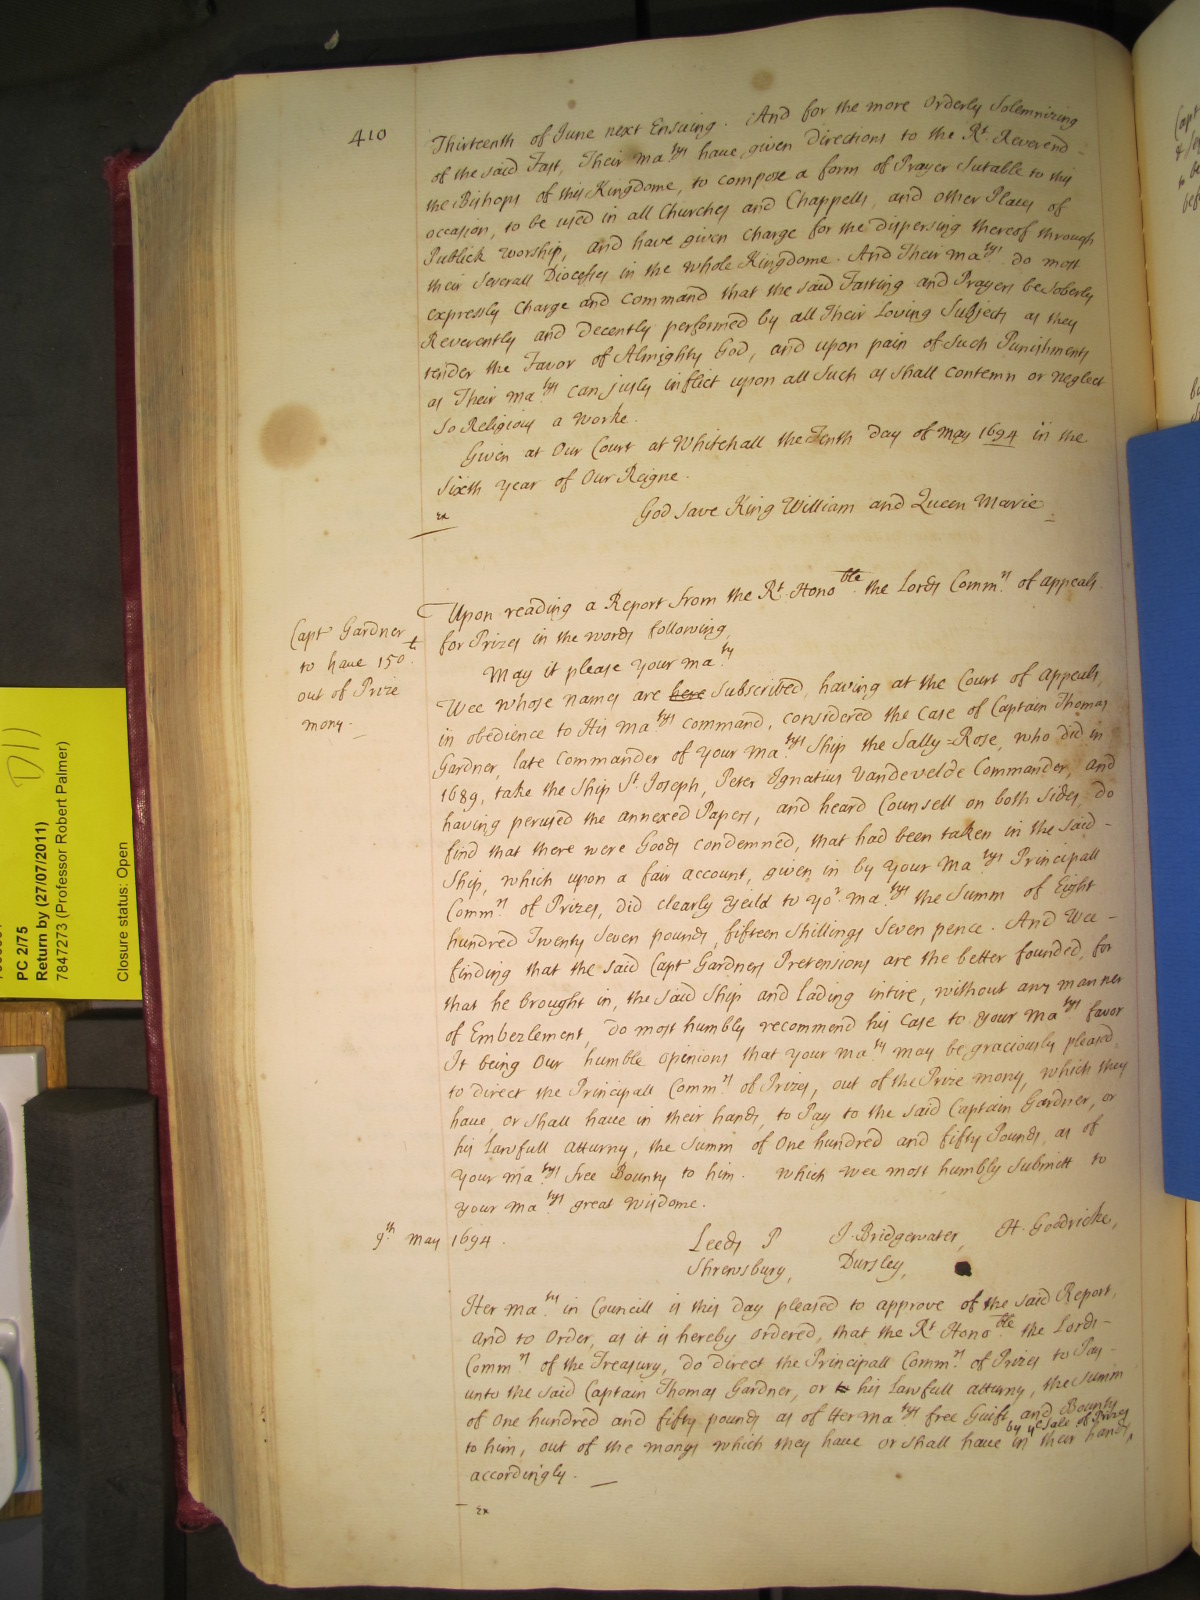 410
Thirteenth of June next Ensuing. And for the more Orderly Solemnizing
of the said Fast, Their Ma.tys have given Directions to the Rt. Reverend -
the Bishops of this Kingdome, to compose a form of Prayer Sutable to this
occasion, to be used in all Churches and Chappells, and other Places of
Publick Worship, and have given Charge for the dispersing thereof through
their Severall Diocesses in the whole Kingdome. And Their Ma.tys do most
expressly Charge and Command that the said Fasting and Prayers be Soberly
Reverently and Decently performed by all Their Loving Subjects as they
tender the Favor of Almighty God, and upon pain of Such Punishments
as Their Ma.tys can justly inflict upon all Such as Shall contemn or neglect
So Religious a Worke.
Given at Our Court at Whitehall the Tenth Day of May 1694 in the
Sixth Year of Our Reigne.
God Save King William and Queen Marie
Ex
Capt Gardner
to have 150£
out of Prize
mony.
Upon reading a Report from the Rt. Honoble. the Lords Commrs. of appeals
for Prizes in the words following
May it please Your Ma.ty
Wee whose names are here Subscribed, having at the Court of Appeals,
in obedience to His Ma.tys command, considered the Case of Captain Thomas
Gardner, late Commander of Your Ma.tys Ship the Sally-Rose, who did in
1689, take the Ship St. Joseph, Peter Ignatius Vandevelde Commander, and
having perused the annexed Papers, and heard Counsell on both Sides, do
find that there were Goods condemned, that had been taken in the said -
Ship, which upon a fair account, given in by Your Ma.tys Principall
Commrs. of Prizes, did clearly Yeild to Yor. Ma.tys the Summ of Eight
hundred Twenty Seven pounds, fifteen Shillings Seven pence. And Wee -
finding that the said Capt Gardners Pretensions are the better founded, for
that he brought in, the said Ship and Lading intire, without any manner
of Embezlement, do most humbly recommend his Case to Your Ma.tys favor
It being Our humble opinions that Your Ma.ty may be graciously pleased
to direct the Principall Commrs. of Prizes, out of the Prize mony, which they
have, or Shall have in their hands, to Pay to the said Captain Gardner, or
his Lawfull atturny, the Summ of One hundred and fifty Pounds, as of
Your Ma.tys free Bounty to him. Which Wee most humbly Submitt to
Your Ma.tys great Wisdome.
9.th May 1694.
Leeds P J. Bridgewater, H. Goodricke,
Shrewsbury, Dursley,
Her Ma.ty in Councill is this Day pleased to approve of the said Report,
and to Order, as it is hereby Ordered, that the Rt. Honoble. the Lords -
Commrs. of the Treasury, do direct the Principall Commrs. of Prizes to Pay -
unto the said Captain Thomas Gardner, or to his Lawfull atturny, the Summ
of One hundred and fifty pounds as of Her Ma.tys free Guift and Bounty
by ye Sale of Prizes
to him, out of the monys which they have or Shall have in their hands,
accordingly.
Ex
D11
PC 2/75
Return by (27/07/2011)
7847273 (Professor Robert Palmer)
Closure status: Open